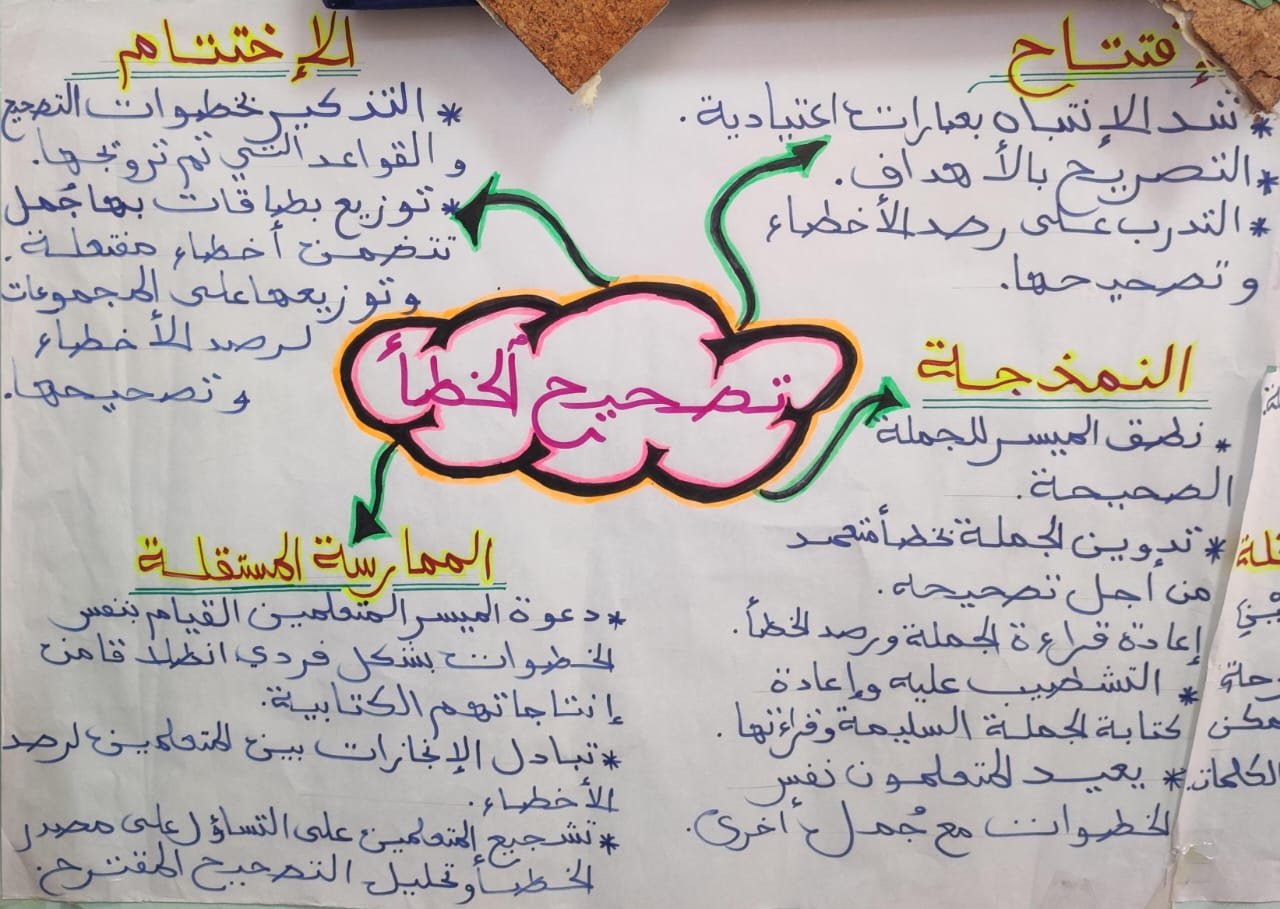 تصحيح الخطأ
إفتتاح
* شد الإنتباه بعبارات اعتيادية.
* التصريح بالأهداف.
* التدرب على رصد الأخطاء
وتصحيحها.
النمذجة
* نطق الميسر للجملة
الصحيحة.
* تدوين الجملة بخطأ متعمد
من أجل تصحيحه.
إعادة قراءة الجملة ورصد الخطأ.
* التشطيب عليه وإعادة
كتابة الجملة السليمة وقراءتها.
* يعيد المتعلمون نفس
الخطوات مع جُمل أخرى.
الممارسة المستقلة
* دعوة الميسر المتعلمين القيام بنفس
الخطوات بشكل فردي انطلاقا من
إنتاجاتهم الكتابية.
* تبادل الإنجازات بين المتعلمين لرصد
الأخطاء.
* تشجيع المتعلمين على التساؤل على مصدر
الخطأ وتحليل التصحيح المقترح.
الإختتام
* التذكير بخطوات التصحيح
والقواعد التي تم ترويجها.
* توزيع بطاقات بها جُمل
تتضمن أخطاء مفتعلة.
وتوزيعها على المجموعات
لرصد الأخطاء
وتصحيحها.
الكلمات